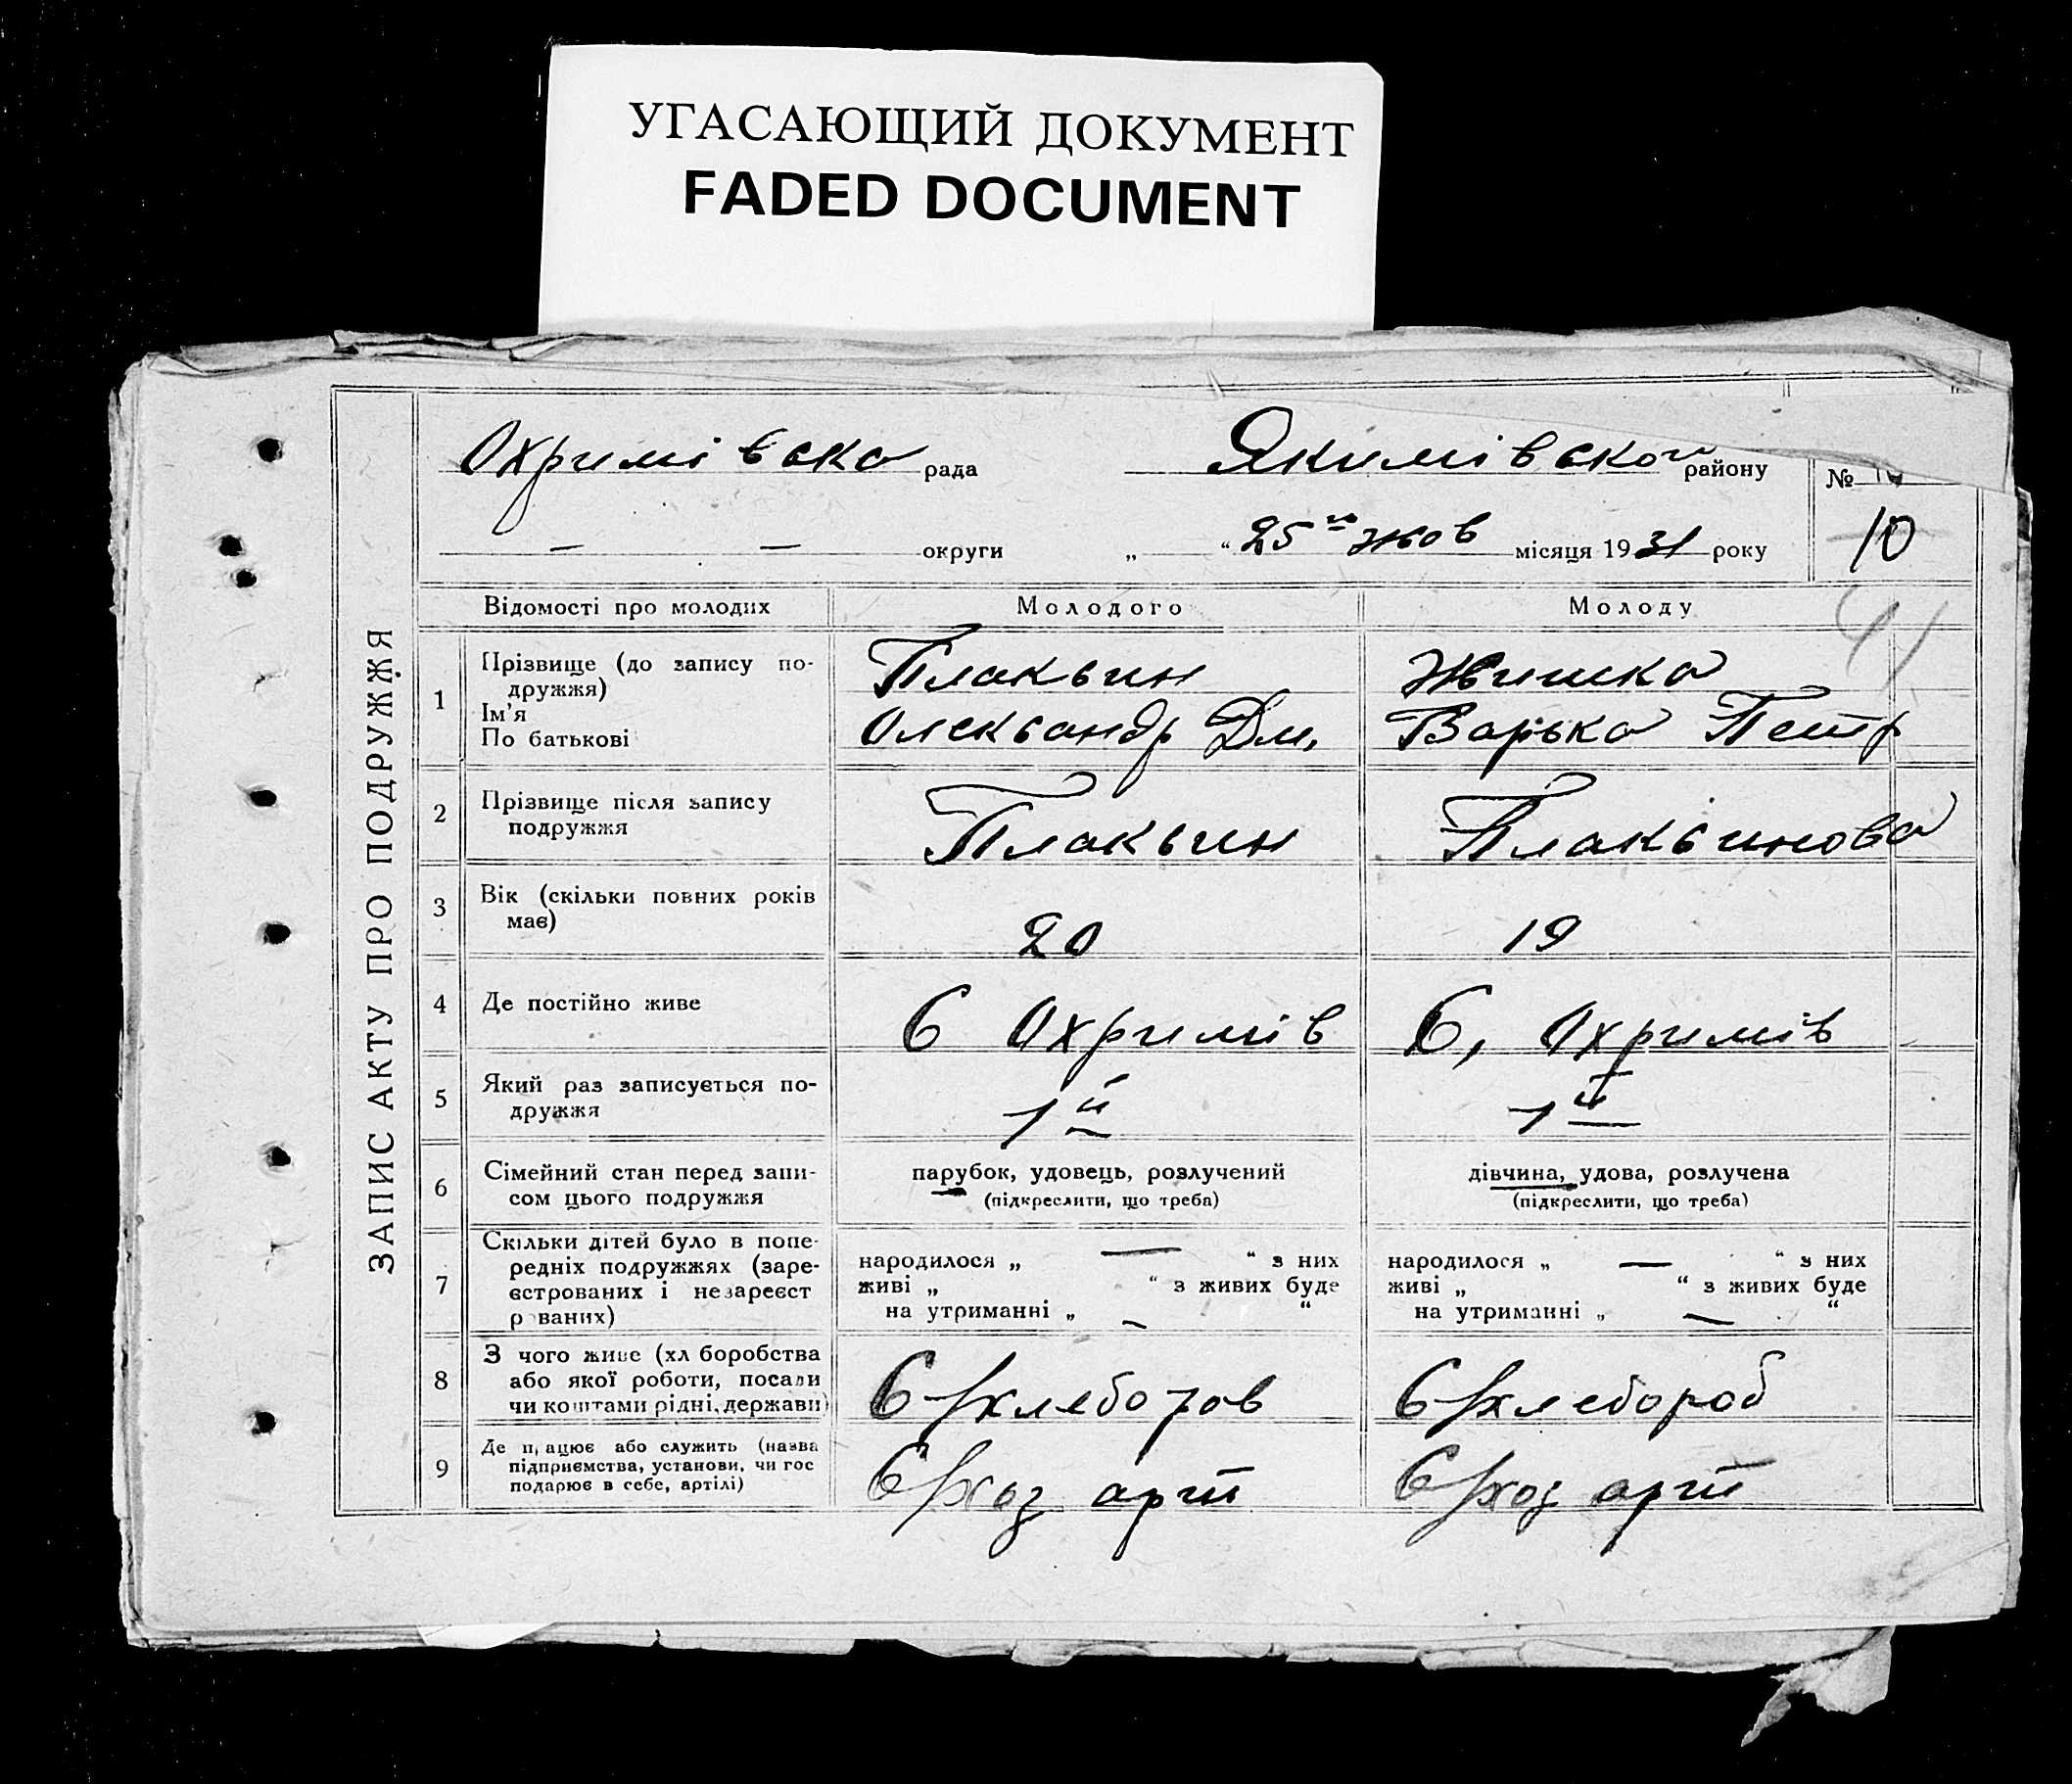 УГАСАЮЩИЙ ДОКУМЕНТ
FADED DOCUMENT
ЗАПИС АКТУ ПРО ПОДРУЖЖЯ
Охримівска рада Якимівской району №
— — округи „ “ 25го жов місяця 1931 року 10
Відомості про молодих Молодого Молоду
1 Прізвище (до запису по-
дружжя)
Ім'я
По батькові
Плаксин
Олександр Дм.
Жишка
Варька Петр
2 Прізвище після запису
подружжя
Плаксин Плаксинова
3 Вік (скільки повних років
має)
20 19
4 Де постійно живе С Охримів С, Охримів
5 Який раз записується по-
дружжя
1й 1й
6 Сімейний стан перед запи-
сом цього подружжя
парубок, удовець, розлучений
(підкреслити, що треба)
дівчина, удова, розлучена
(підкреслити, що треба)
7 Скільки дітей було в попе-
редніх подружжях (заре-
єстрованих і незареєст
р ваних)
народилося „ — “ з них
живі „ “ з живих буде
на утриманні „ — “
народилося „ — “ з них
живі „ “ з живих буде
на утриманні „ — “
8 З чого живе (хл боробства
або якої роботи, посади
чи коштами рідні, держави)
С/хлебороб С/хлебороб
9 Де працює або служить (назва
підприємства, установи, чи гос
подарює в себе, артілі)
С/хоз арт С/хоз арт